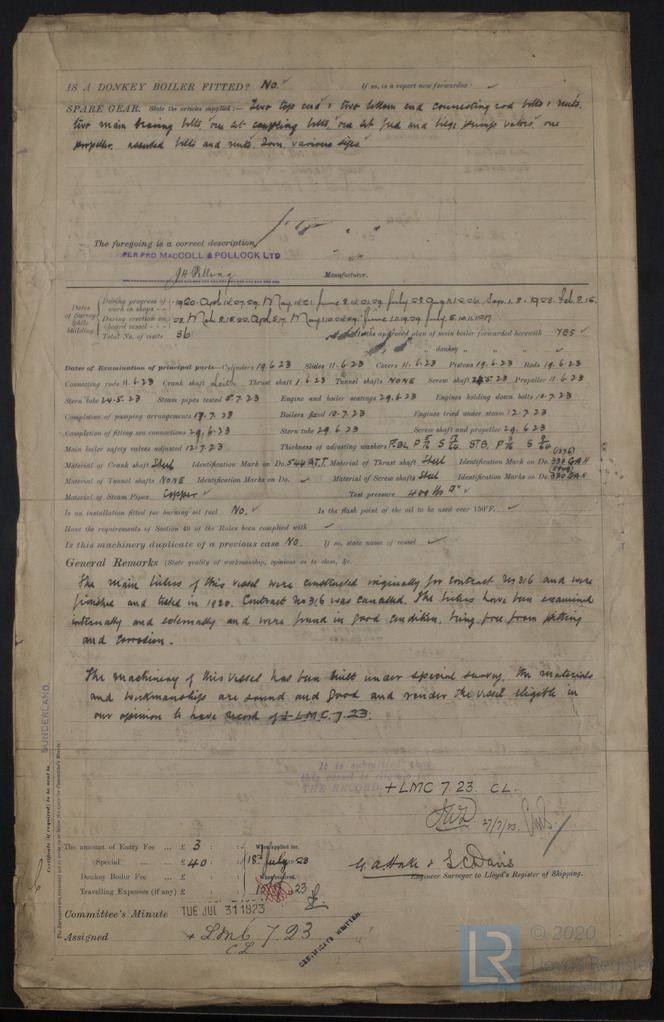 IS A DONKEY BOILER FITTED? No. ✓ If so, is a report now forwarded? ✓
SPARE GEAR. State the articles supplied:— Two top end & two bottom end connecting rod bolts & nuts.
two main bearing bolts, one set coupling bolts, one set feed and bilge pump valves, one
propeller, assorted bolts and nuts. Iron various sizes.
The foregoing is a correct description,
PER PRO MACCOLL & POLLOCK LTD
J.H. Pelling Manufacturer.
Dates of Survey while building
During progress of work in shops --
During erection on board vessel ---
Total No. of visits 36 Is the approved plan of main boiler forwarded herewith YES ✓
" " " donkey " " " ✓
Dates of Examination of principal parts—Cylinders 19.6.23 Slides 11.6.23 Covers 11.6.23 Pistons 19.6.23 Rods 19.6.23
Connecting rods 11.6.23 Crank shaft Leith Thrust shaft 1.6.23 Tunnel shafts NONE Screw shaft 24.5.23 Propeller 11.6.23
Stern tube 24.5.23 Steam pipes tested 5.7.23 Engine and boiler seatings 29.6.23 Engines holding down bolts 10.7.23
Completion of pumping arrangements 17.7.23 Boilers fixed 10.7.23 Engines tried under steam 12.7.23
Completion of fitting sea connections 29.6.23 Stern tube 29.6.23 Screw shaft and propeller 29.6.23
Main boiler safety valves adjusted 12.7.23 Thickness of adjusting washers
Material of Crank shaft Steel Identification Mark on Do. Material of Thrust shaft Steel Identification Mark on Do. 330 GAH
Material of Tunnel shafts NONE Identification Marks on Do. ✓ Material of Screw shafts Steel Identification Marks on Do. 330 GAH
Material of Steam Pipes Copper ✓ Test pressure 400 lbs □" ✓
Is an installation fitted for burning oil fuel No. ✓ Is the flash point of the oil to be used over 150°F. ✓
Have the requirements of Section 49 of the Rules been complied with ✓
Is this machinery duplicate of a previous case NO. If so, state name of vessel ✓
General Remarks (State quality of workmanship, opinions as to class, &c.
The main boilers of this vessel were constructed originally for contract No 316 and were
finished and tested in 1920. Contract No 316 was cancelled. The boilers have been examined
internally and externally and were found in good condition, being free from pitting
and corrosion.
The machinery of this vessel has been built under special survey, the materials
and workmanship are sound and good and render the vessel eligible in
our opinion to have record of + LMC. 7. 23.
It is submitted that
this vessel is eligible for
THE RECORD. + LMC 7. 23. CL.
27/7/23.
SUNDERLAND.
Certificate (if required) to be sent to
The amount of Entry Fee ... £ 3 : : When applied for,
Special ... £ 40 : : 18th July 1923
Donkey Boiler Fee ... £ : : When received,
Travelling Expenses (if any) £ : : 23
G. A. Hake & S.C. Davis
Engineer Surveyor to Lloyd's Register of Shipping.
Committee's Minute TUE JUL 31 1923
Assigned + LMC 7.23
CL
CERTIFICATE WRITTEN.
LR © 2020
Lloyd's Register
Foundation